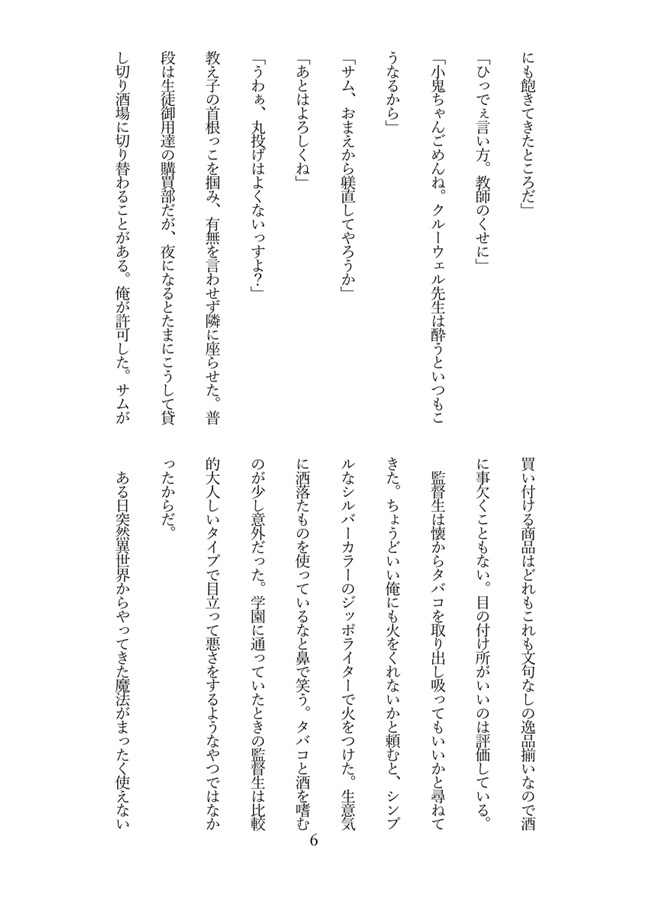 にも飽きてきたところだ」
「ひっでぇ言い方。教師のくせに」
「小鬼ちゃんごめんね。クルーウェル先生は酔うといつもこ
うなるから」
「サム、おまえから躾直してやろうか」
「あとはよろしくね」
「うわぁ、丸投げはよくないっすよ？」
教え子の首根っこを掴み、有無を言わせず隣に座らせた。普
段は生徒御用達の購買部だが、夜になるとたまにこうして貸
し切り酒場に切り替わることがある。俺が許可した。サムが
買い付ける商品はどれもこれも文句なしの逸品揃いなので酒
に事欠くこともない。目の付け所がいいのは評価している。
監督生は懐からタバコを取り出し吸ってもいいかと尋ねて
きた。ちょうどいい俺にも火をくれないかと頼むと、シンプ
ルなシルバーカラーのジッポライターで火をつけた。生意気
に洒落たものを使っているなと鼻で笑う。タバコと酒を嗜む
のが少し意外だった。学園に通っていたときの監督生は比較
的大人しいタイプで目立って悪さをするようなやつではなか
ったからだ。
ある日突然異世界からやってきた魔法がまったく使えない
6